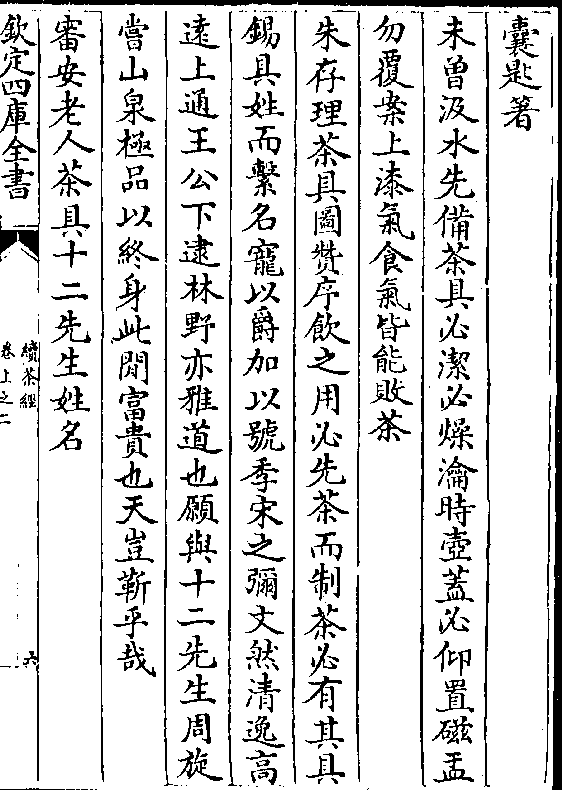 囊匙箸
未曾汲水先備茶具必潔必燥瀹時壺蓋必仰置磁盂
勿覆案上漆氣食氣皆能敗茶
朱存理茶具圖贊序飲之用必先茶而制茶必有其具
錫具姓而繫名寵以爵加以號季宋之彌文然清逸高
遠上通王公下逮林野亦雅道也願與十二先生周旋
嘗山泉極品以終身此閒富貴也天豈靳乎哉
審安老人茶具十二先生姓名
欽定四庫全書
續茶經
卷上之二
六